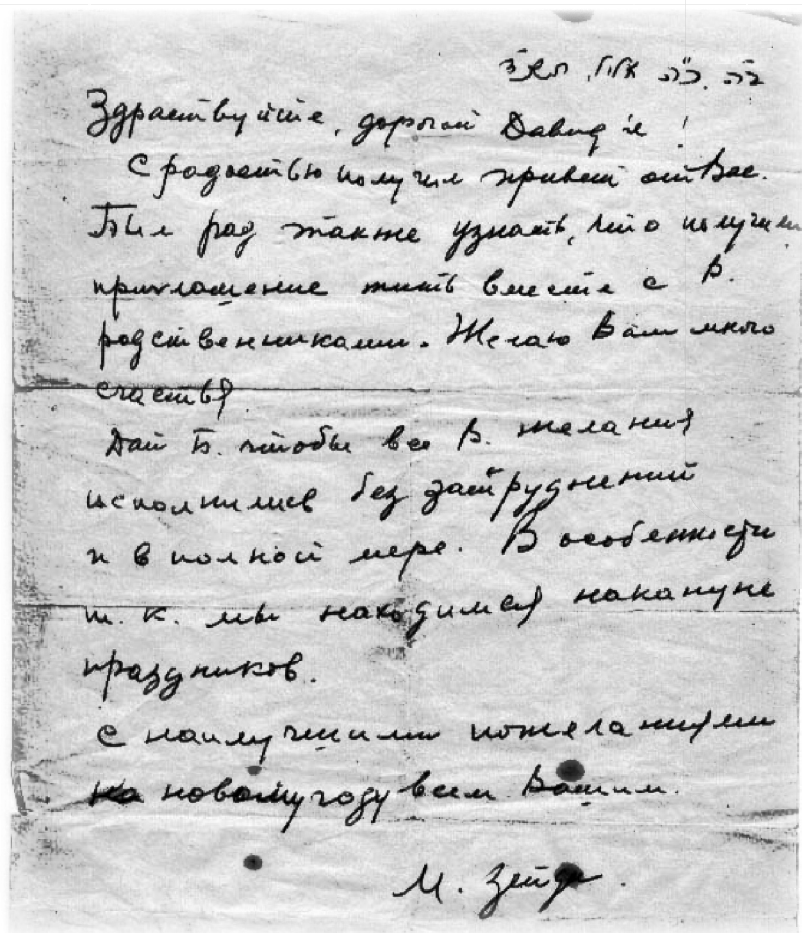 ב"ה, כ"ה אלול,
Здраствуйте, дорогой Давид'к!
С радостью получил привет от Вас.
Был рад также узнать, что получили
приглашение жить вместе с В.
родственниками. Желаю Вам много
счастья
Дай Б. чтобы все В. желания
исполнились без затруднений
и в полной мере. В особенности
т. к. мы находимся накануне
праздников.
С наилучшими пожеланиями
новому году всем Вашим.
М.